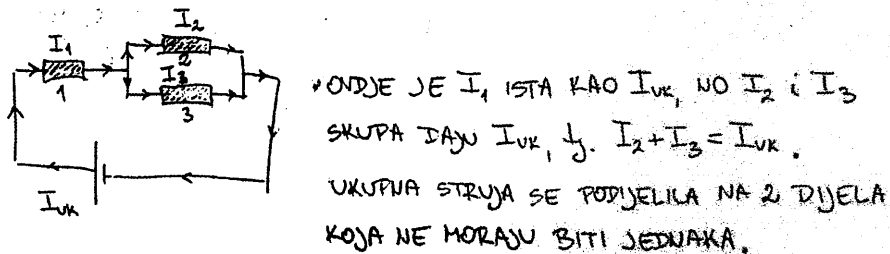 I₁
I₂
2
I₃
1
3
I_UK
• OVDJE JE I₁ ISTA KAO I_UK, NO I₂ i I₃
SKUPA DAJU I_UK, tj. I₂+I₃=I_UK.
UKUPNA STRUJA SE PODIJELILA NA 2 DIJELA
KOJA NE MORAJU BITI JEDNAKA.